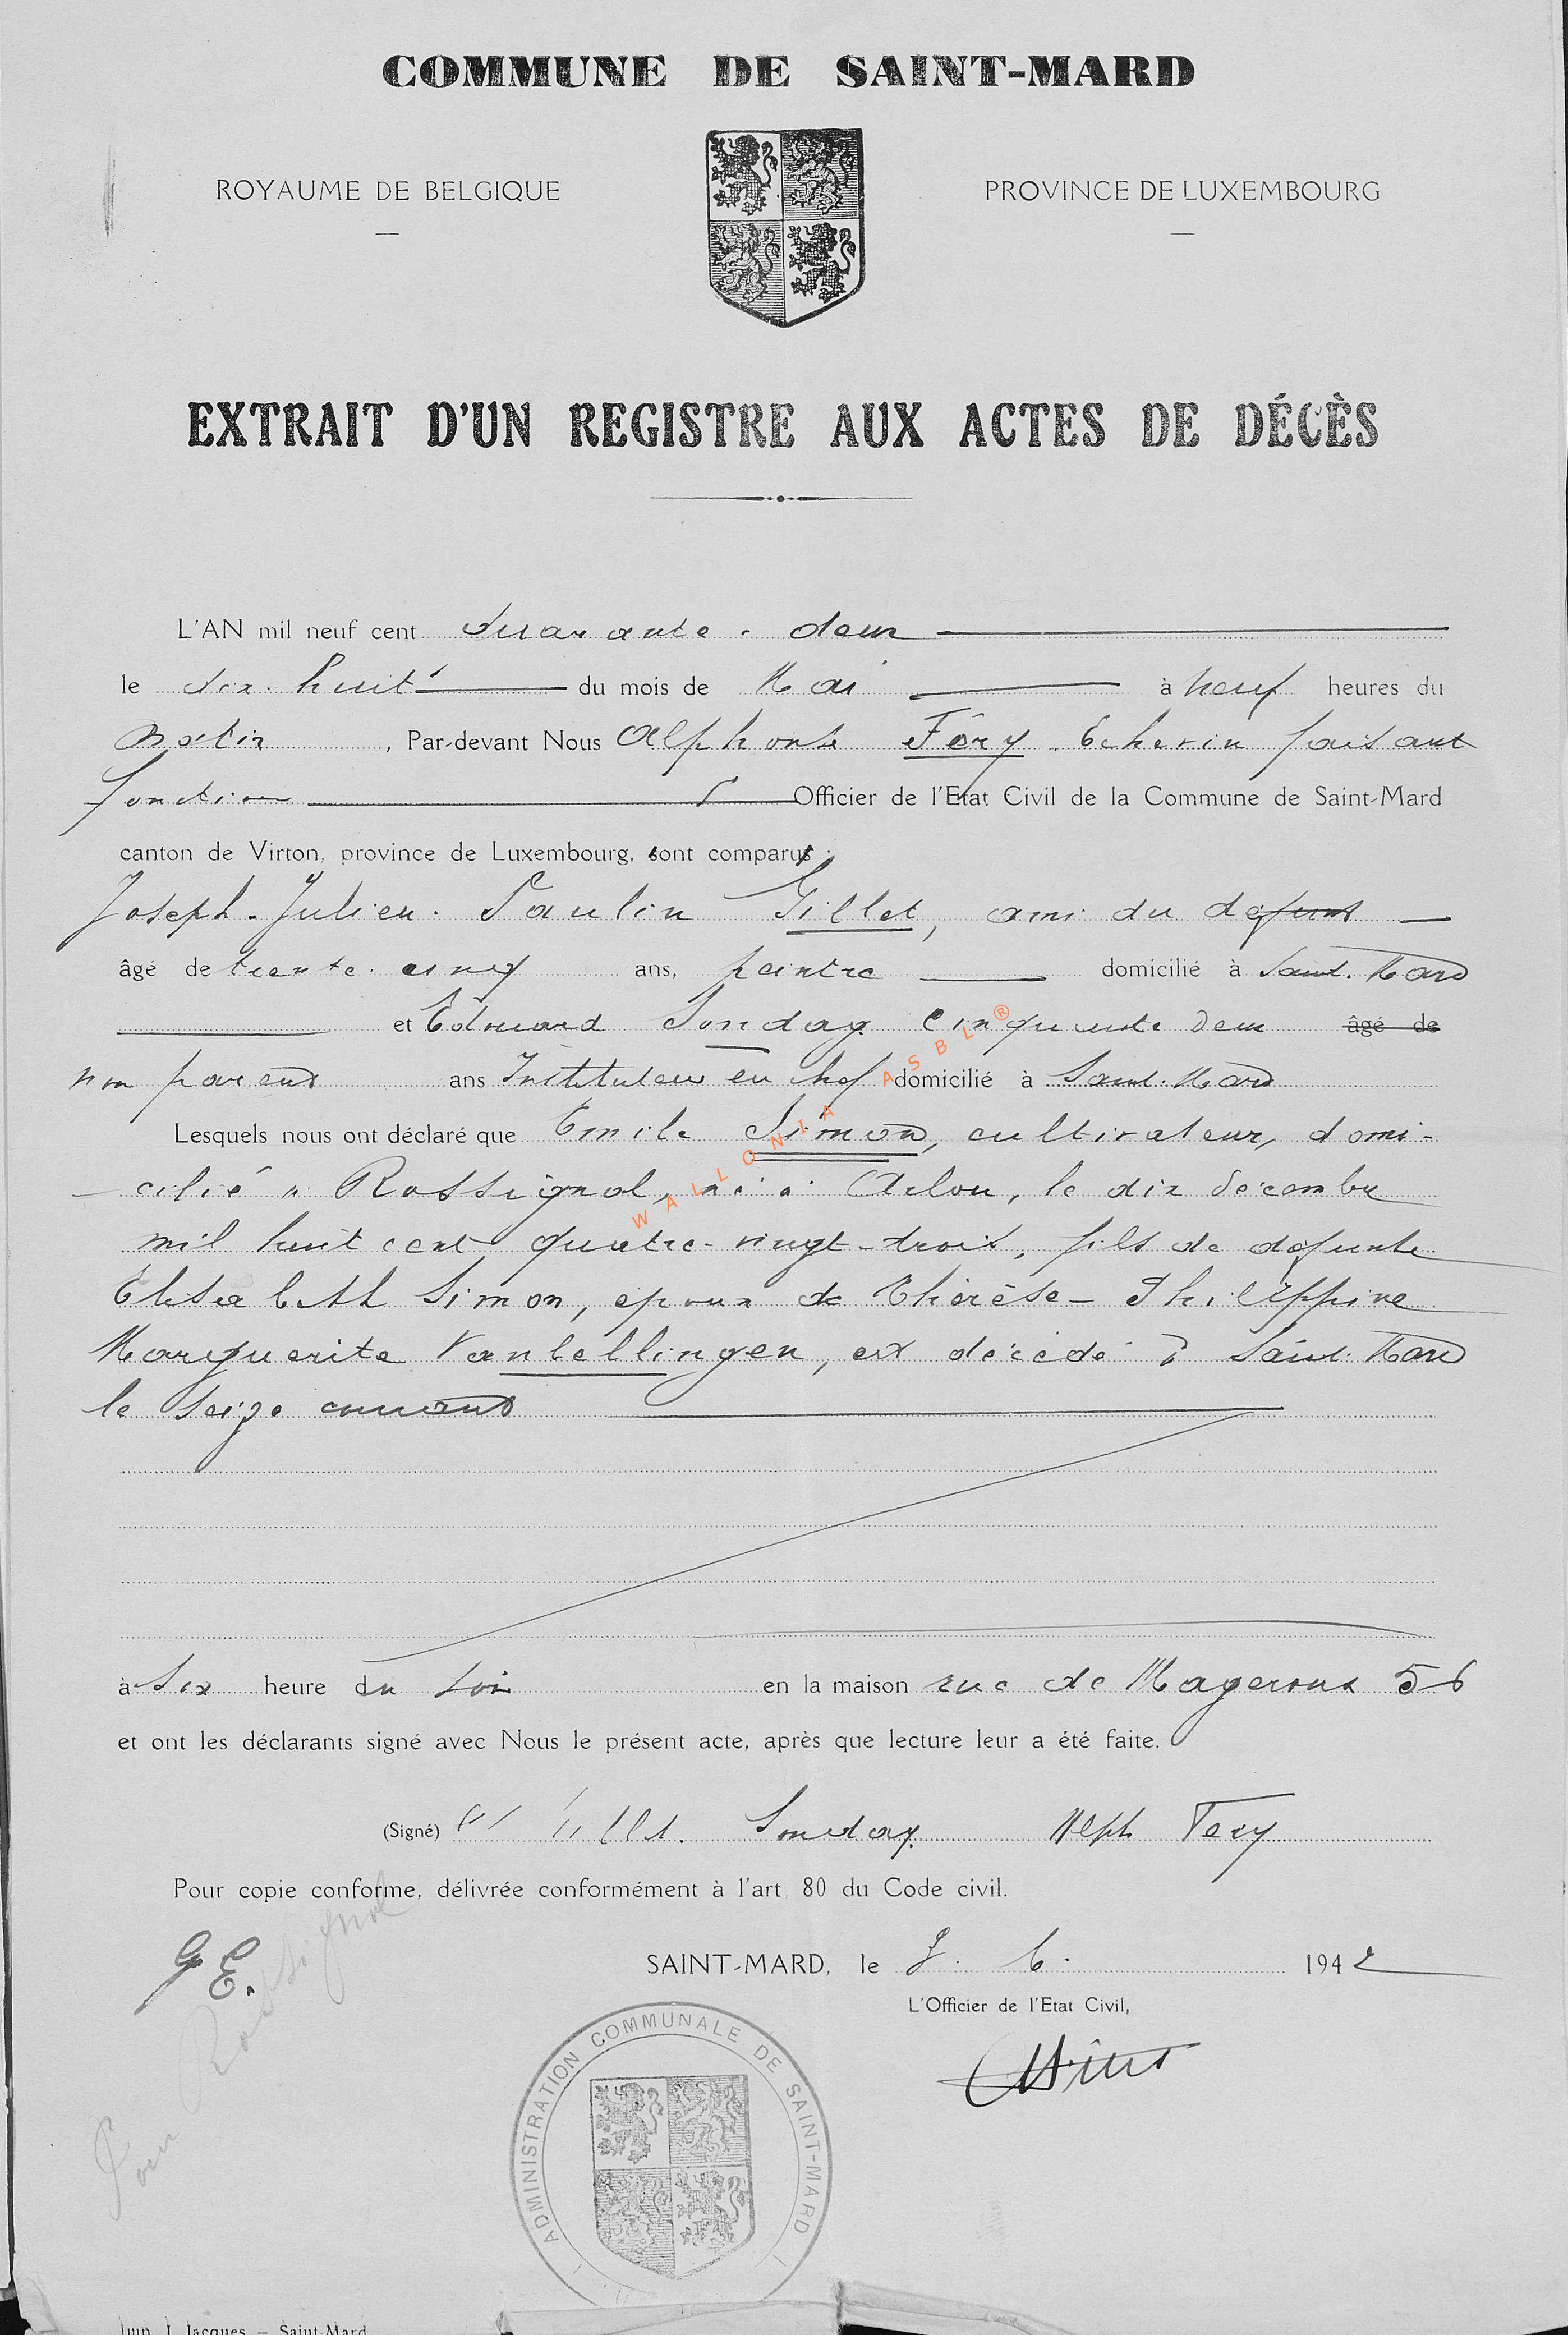 COMMUNE DE SAINT-MARD
ROYAUME DE BELGIQUE
PROVINCE DE LUXEMBOURG
EXTRAIT D'UN REGISTRE AUX ACTES DE DÉCÈS
L'AN mil neuf cent quarante-deux
le dix-huit du mois de Mai à neuf heures du
matin, Par-devant Nous Alphonse Féry Echevin faisant
fonction Officier de l'Etat Civil de la Commune de Saint-Mard
canton de Virton, province de Luxembourg, sont comparus :
Joseph-Julien-Paulin Gillet, ami du défunt
âgé de trente-cinq ans, peintre domicilié à Saint-Mard
et Edouard Sondag cinquante deux âgé de
non parent ans Instituteur en chef domicilié à Saint-Mard
Lesquels nous ont déclaré que Emile Simon, cultivateur, domi-
cilié à Rossignol, né à Arlon, le dix décembre
mil huit cent quatre-vingt-trois, fils de défunte
Elisabeth Simon, époux de Thérèse-Philippine
Marguerite Vanbellingen, est décédé à Saint-Mard
le seize courant
à six heure du soir en la maison rue de Mageroux 56
et ont les déclarants signé avec Nous le présent acte, après que lecture leur a été faite.
(Signé) Sondag Alph Fery
Pour copie conforme, délivrée conformément à l'art 80 du Code civil.
G E.
SAINT-MARD, le 6. 1942
L'Officier de l'Etat Civil,
Rossignol
ADMINISTRATION COMMUNALE DE SAINT-MARD
Imp. J. Jacques – Saint-Mard
WALLONIA ASBL®